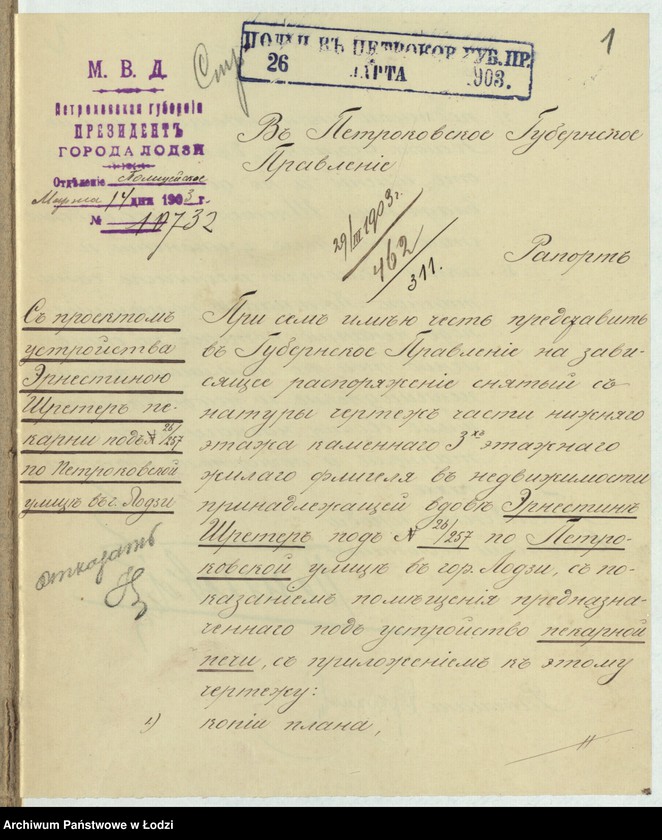 1
ПОЛУЧ. ВЪ ПЕТРОКОВ. ГУБ. ПР.
26 МАРТА 1903.
М. В. Д.
Петроковской губерніи
ПРЕЗИДЕНТЪ
ГОРОДА ЛОДЗИ
Отдѣленіе Полицейское
Марта 14 дня 1903 г.
№ 10732
Въ Петроковское Губернское
Правленіе
29/III 1903 г.
462
311.
Рапортъ
Съ проэктомъ
устройства
Эрнестиною
Шретеръ пе-
карни подъ № 26/257
по Петроковской
улицѣ въ г. Лодзи
отказать
При семъ имѣю честь представить
въ Губернское Правленіе на зави-
сящее распоряженіе снятый съ
натуры чертежъ части нижняго
этажа каменнаго 3хъ этажнаго
жилаго флигеля въ недвижимости
принадлежащей вдовѣ Эрнестинѣ
Шретеръ подъ № 26/257 по Петро-
ковской улицѣ въ гор. Лодзи, съ по-
казаніемъ помѣщенія предназна-
ченнаго подъ устройство пекарной
печи, съ приложеніемъ къ этому
чертежу:
1) копіи плана,
Archiwum Państwowe w Łodzi